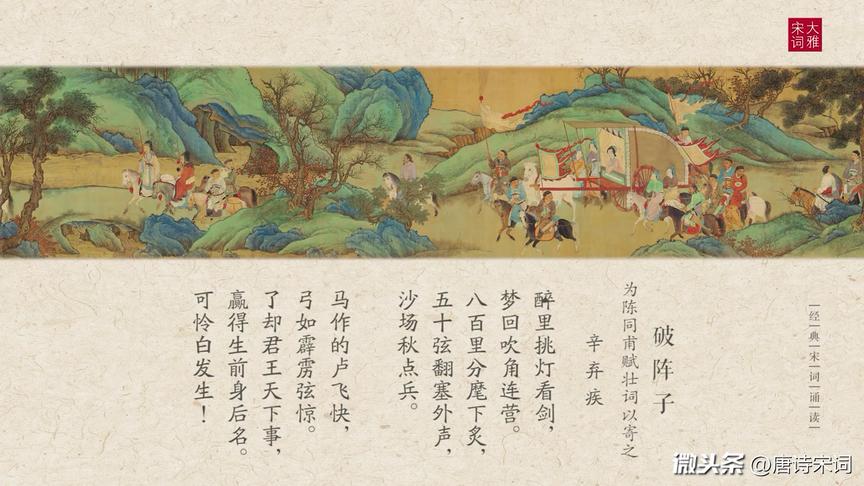 大雅
宋词
经典宋词诵读
破阵子
为陈同甫赋壮词以寄之
辛弃疾
醉里挑灯看剑，
梦回吹角连营。
八百里分麾下炙，
五十弦翻塞外声，
沙场秋点兵。
马作的卢飞快，
弓如霹雳弦惊。
了却君王天下事，
赢得生前身后名。
可怜白发生！
微头条 @唐诗宋词